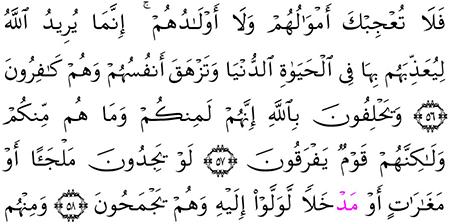 فَلَا تُعْجِبْكَ أَمْوَٰلُهُمْ وَلَا أَوْلَٰدُهُمْ ۚ إِنَّمَا يُرِيدُ ٱللَّهُ
لِيُعَذِّبَهُم بِهَا فِى ٱلْحَيَوٰةِ ٱلدُّنْيَا وَتَزْهَقَ أَنفُسُهُمْ وَهُمْ كَٰفِرُونَ
﴿٥٦﴾ وَيَحْلِفُونَ بِٱللَّهِ إِنَّهُمْ لَمِنكُمْ وَمَا هُم مِّنكُمْ
وَلَٰكِنَّهُمْ قَوْمٌ يَفْرَقُونَ ﴿٥٧﴾ لَوْ يَجِدُونَ مَلْجَـًٔا أَوْ
مَغَٰرَٰتٍ أَوْ مَدْخَلًا لَّوَلَّوْا۟ إِلَيْهِ وَهُمْ يَجْمَحُونَ ﴿٥٨﴾ وَمِنْهُم